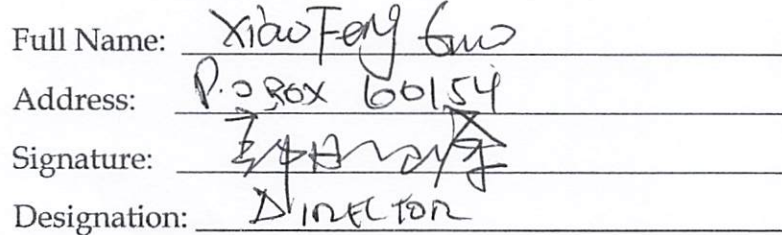 Full Name: XiaoFeng Guo
Address: P.O BOX 60154
Signature:
Designation: DIRECTOR